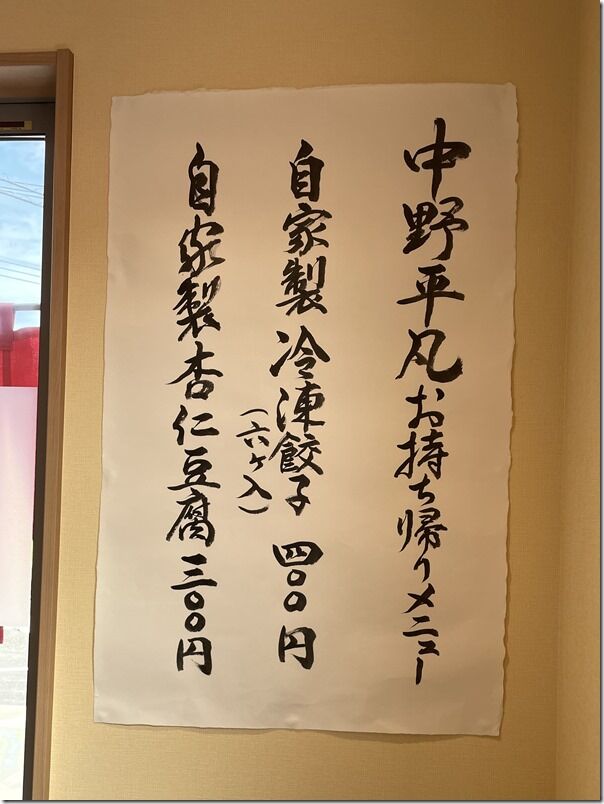 中野平凡お持ち帰りメニュー
自家製冷凍餃子 四〇〇円
(六ヶ入)
自家製杏仁豆腐 三〇〇円